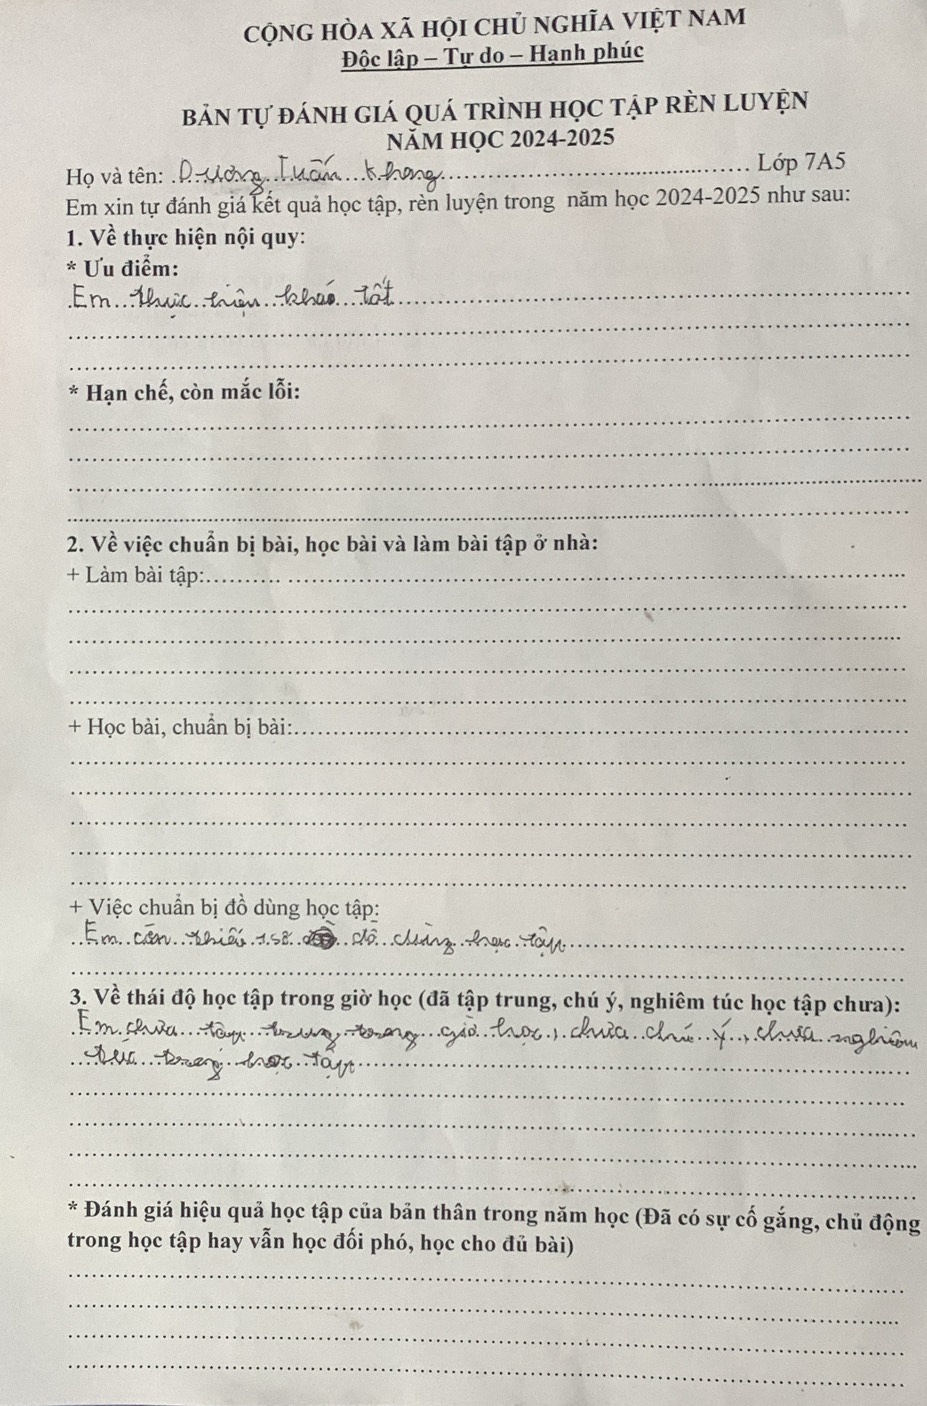 CỘNG HÒA XÃ HỘI CHỦ NGHĨA VIỆT NAM
Độc lập – Tự do – Hạnh phúc
BẢN TỰ ĐÁNH GIÁ QUÁ TRÌNH HỌC TẬP RÈN LUYỆN
NĂM HỌC 2024-2025
Họ và tên: Dương Tuấn Khang Lớp 7A5
Em xin tự đánh giá kết quả học tập, rèn luyện trong năm học 2024-2025 như sau:
1. Về thực hiện nội quy:
* Ưu điểm:
Em thực hiện khá tốt
* Hạn chế, còn mắc lỗi:
2. Về việc chuẩn bị bài, học bài và làm bài tập ở nhà:
+ Làm bài tập:
+ Học bài, chuẩn bị bài:
+ Việc chuẩn bị đồ dùng học tập:
Em còn thiếu 1 số đồ dùng học tập
3. Về thái độ học tập trong giờ học (đã tập trung, chú ý, nghiêm túc học tập chưa):
Em chưa tập trung trong giờ học, chưa chú ý, chưa nghiêm
túc trong học tập
* Đánh giá hiệu quả học tập của bản thân trong năm học (Đã có sự cố gắng, chủ động
trong học tập hay vẫn học đối phó, học cho đủ bài)